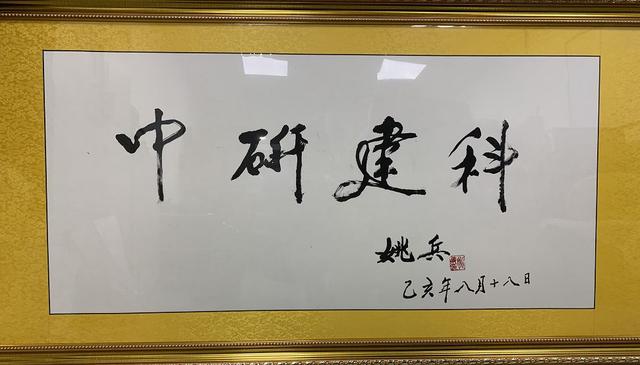 中研建科
姚兵
乙亥年八月十八日